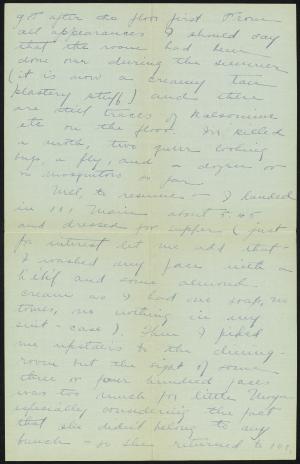 got after the floor first. From
all appearances I should say
that the room had been
done over during the summer
(it is now a creamy tan
plastery stuff) and there
are still traces of Kalsomine
etc on the floor. I've killed
a moth, two queer looking
bugs, a fly, and a dozen or
so mosquitoes so far.
Well, to resume - I landed
in 101 Main about 5:45
and dressed for supper (just
for interest let me add that
I washed my face with a
h'k'f and some almond
cream as I had no soap, no
towel, no nothing in my
suit-case). Then I
me upstairs to the dining-
room but the sight of some
three or four hundred faces
was too much for little
especially considering the fact
that she didn't belong to any
bunch - so she returned to 101,